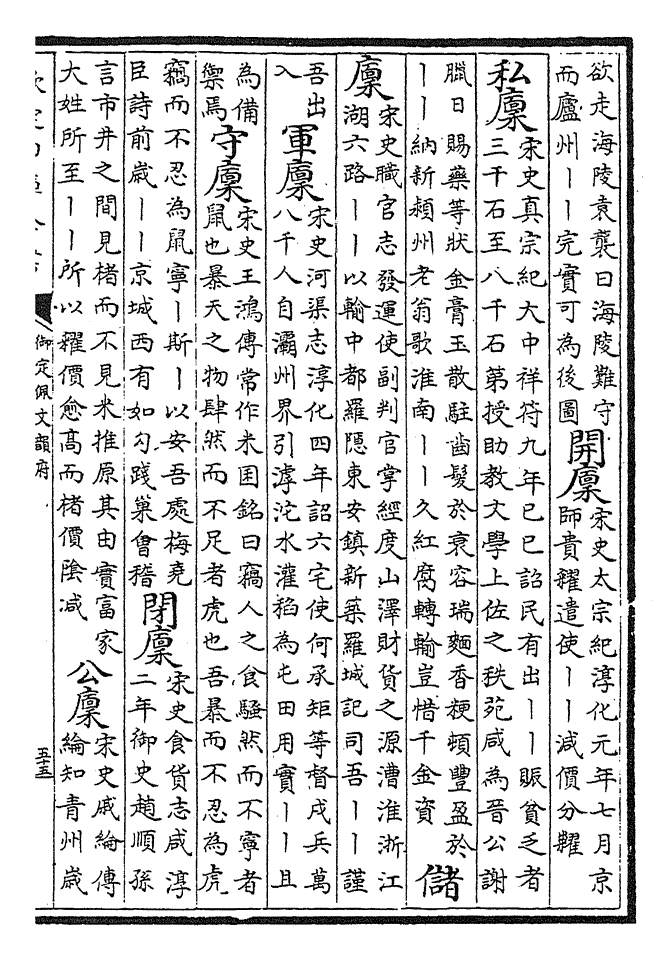 欲走海陵袁襲曰海陵難守
而廬州丨丨完實可為後圖
開廩
宋史太宗紀淳化元年七月京
師貴糴遣使丨丨減價分糶
私廩
宋史真宗紀大中祥符九年巳巳詔民有出丨丨賑貧乏者
三千石至八千石第授助教文學上佐之秩苑咸為晉公謝
臘日賜藥等狀金膏玉散駐齒髮於衰容瑞麵香粳頓豐盈於
丨丨納新潁州老翁歌淮南丨丨久紅腐轉輸豈惜千金資
儲
廩
宋史職官志發運使副判官掌經度山澤財貨之源漕淮浙江
湖六路丨丨以輸中都羅隱東安鎮新築羅城記司吾丨丨謹
吾出
入
軍廩
宋史河渠志淳化四年詔六宅使何承矩等督戍兵萬
八千人自灞州界引滹沱水灌稻為屯田用實丨丨且
為備
禦焉
守廩
宋史王鴻傳常作米囷銘曰竊人之食騷然而不寧者
鼠也暴天之物肆然而不足者虎也吾暴而不忍為虎
竊而不忍為鼠寧丨斯丨以安吾處梅堯
臣詩前歲丨丨京城西有如勾踐巢會稽
閉廩
宋史食貨志咸淳
二年御史趙順孫
言市井之間見楮而不見米推原其由實富家
大姓所至丨丨所以糴價愈高而楮價陰减
公廩
宋史戚綸傳
綸知青州歲
欽定四庫全書
御定佩文韻府
五十五